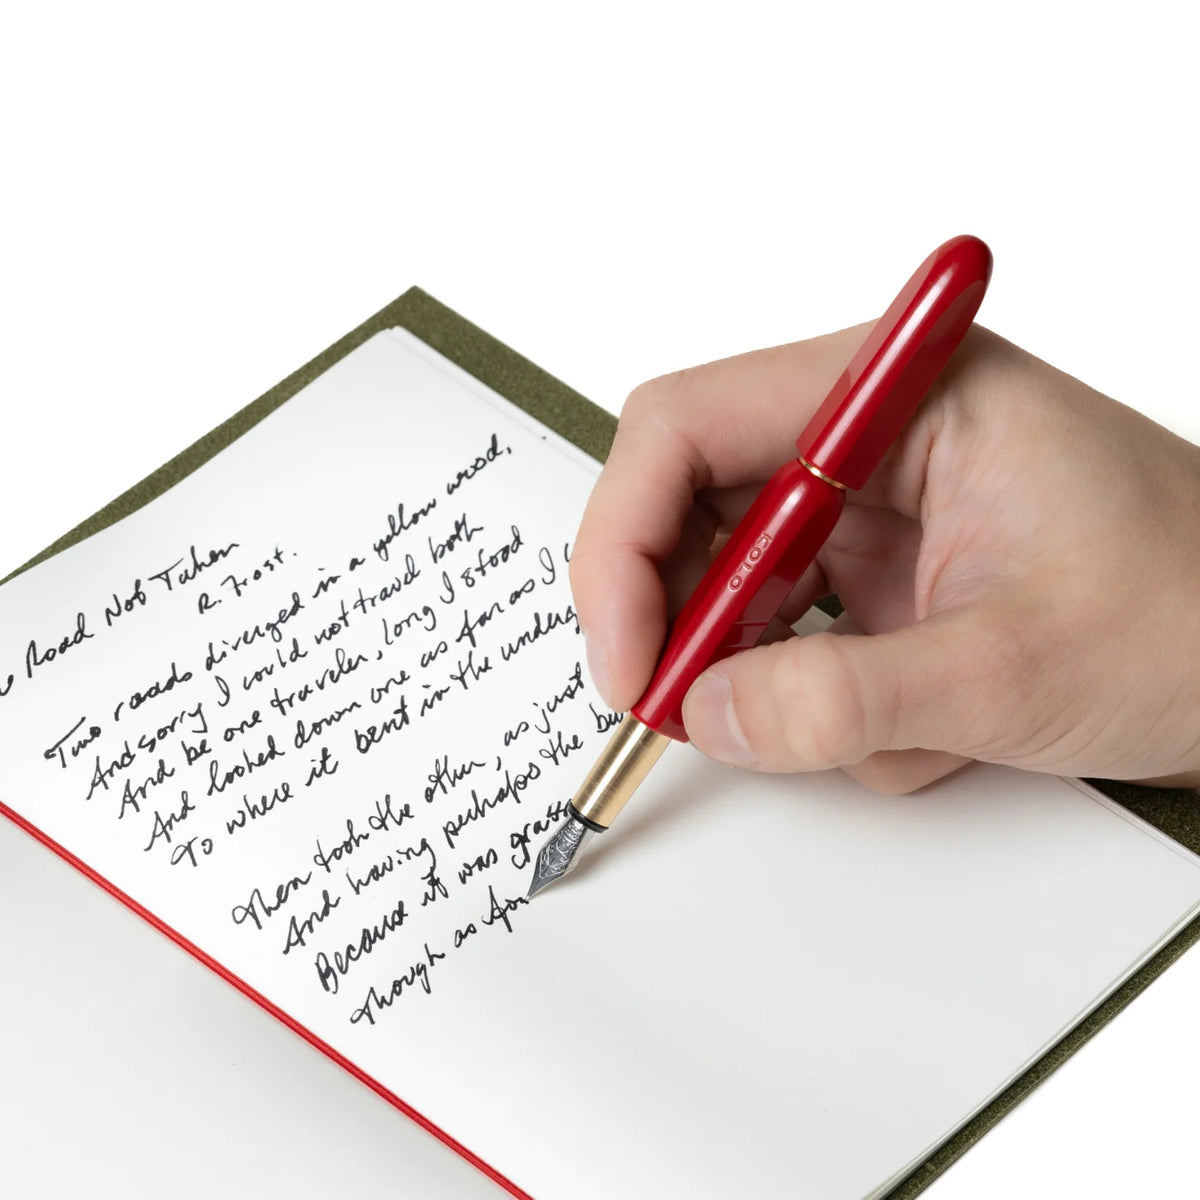 Road Not Taken
R. Frost.
Two roads diverged in a yellow wood,
And sorry I could not travel both
And be one traveler, long I stood
And looked down one as far as I
To where it bent in the underg
Then took the other, as just
And having perhaps the be
Because it was grass
Though as for